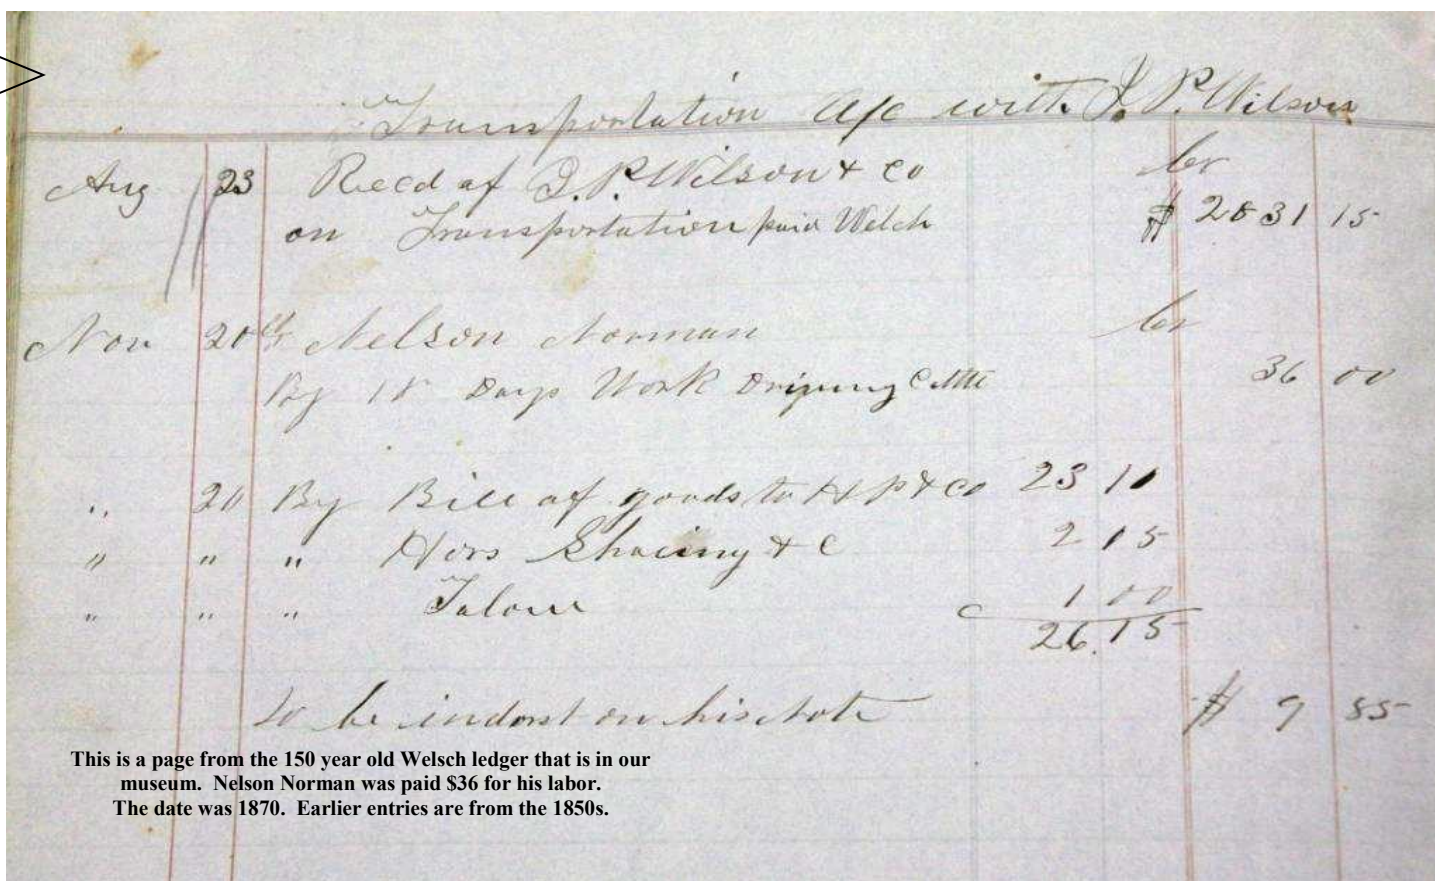 Transportation A/c with J. P. Wilson
Aug 23 Recd of J. P. Wilson & Co Cr
on Transportation paid Welch $ 2831 15
Nov 20th Nelson Norman Cr
By 18 Days Work Driving Cattle 36 00
" 20 By Bill of goods to H P & Co 23 10
" " " Hors Shoeing & C 2 15
" " " 1 00
26.15
to be indorst on his Note $ 9 85
This is a page from the 150 year old Welsch ledger that is in our
museum. Nelson Norman was paid $36 for his labor.
The date was 1870. Earlier entries are from the 1850s.